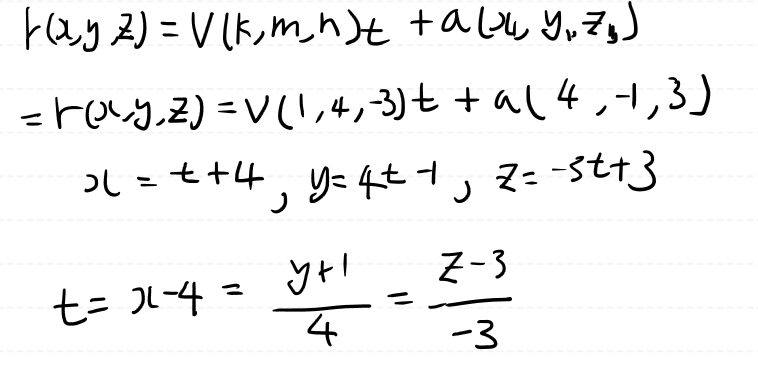 r(x,y,z) = V(k,m,n)t + a(x₁, y₁, z₁)
= r(x,y,z) = V(1,4,-3)t + a(4,-1,3)
x = t+4, y=4t-1, z=-3t+3
t= x-4 = \frac{y+1}{4} = \frac{z-3}{-3}